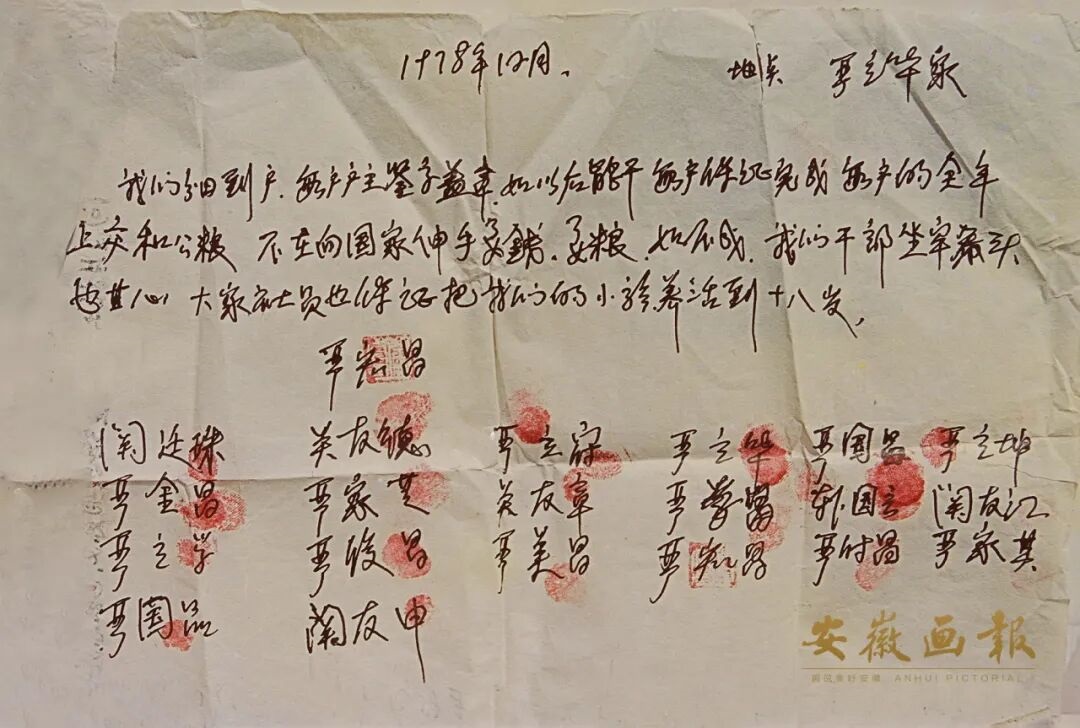 1978年12月. 地点 严立华家
我们分田到户. 每户户主签字盖章. 如以后能干 每户保证完成 每户的全年
上交和公粮 不在向国家伸手要钱. 要粮. 如不成. 我们干部坐牢杀头
也甘心 大家社员也保证把我们的小孩养活到十八岁,
严宏昌
关廷珠 关友德 严立符 严立华 严国昌 严立坤
严金昌 严家芝 关友章 严学昌 韩国云 关友江
严立学 严俊昌 严美昌 严宏昌 严付昌 严家其
严国品 关友申
安徽画报
ANHUI PICTORIAL